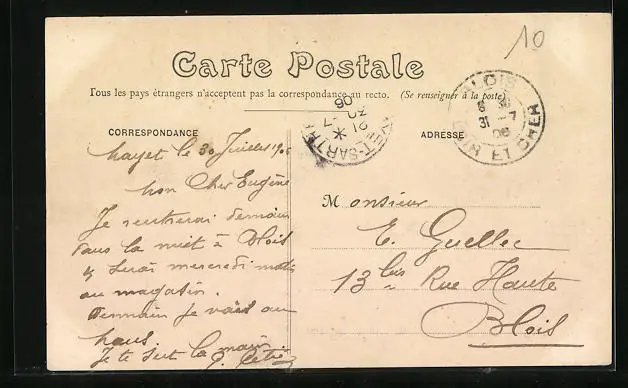 10
Carte Postale
Tous les pays étrangers n'acceptent pas la correspondance au recto. (Se renseigner à la poste)
CORRESPONDANCE
ADRESSE
BLOIS
31 -7
06
LOIR ET CHER
MAYET-SARTHE
21 *
30 -7
06
Mayet le 30 Juillet 1906
Mon Cher Eugène
Je rentrerai demain
dans la nuit à Blois
& serai mercredi matin
au magasin.
Demain je vais au
Mans.
Je te sert la main
Monsieur
E. Guellec
13 bis Rue Haute
Blois